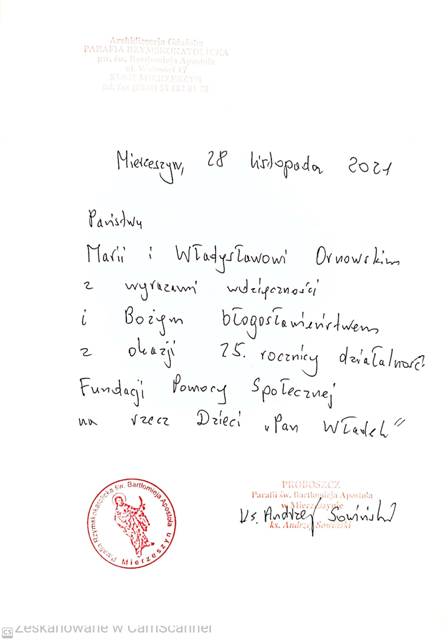 Archidiecezja Gdańska
PARAFIA RZYMSKOKATOLICKA
pw. św. Bartłomieja Apostoła
MIERZESZYN
Mierzeszyn, 28 listopada 2021
Państwu
Marii i Władysławowi Ornowskim
z wyrazami wdzięczności
i Bożym błogosławieństwem
z okazji 25. rocznicy działalności
Fundacji Pomocy Społecznej
na rzecz Dzieci „Pan Władek”
PROBOSZCZ
Parafii św. Bartłomieja Apostoła
w Mierzeszynie
ks. Andrzej Sowiński
Ks. Andrzej Sowiński
Parafia Rzymskokatolicka św. Bartłomieja Apostoła
Mierzeszyn
CS Zeskanowane w CamScanner